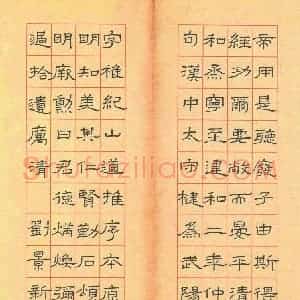 帝用是聽廢子由斯得
經功爾要敞而晏平清
和烝寧至建和二年仲
旬漢中太守犍為武陽
字稚紀山道推序本原
明知美其仁賢勒石頌
明厥勳曰君德炳煥彌
過拾遺厲清劉景新
shufaziliao.com